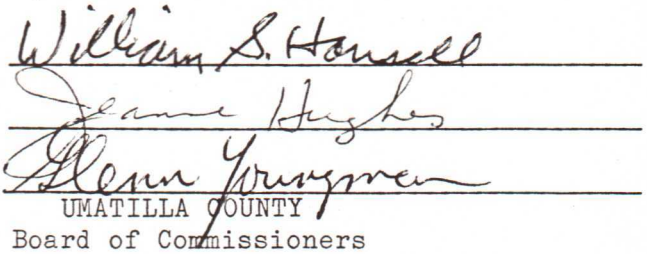 William S. Hansell
Jeanne Hughes
Glenn Youngman
UMATILLA COUNTY
Board of Commissioners